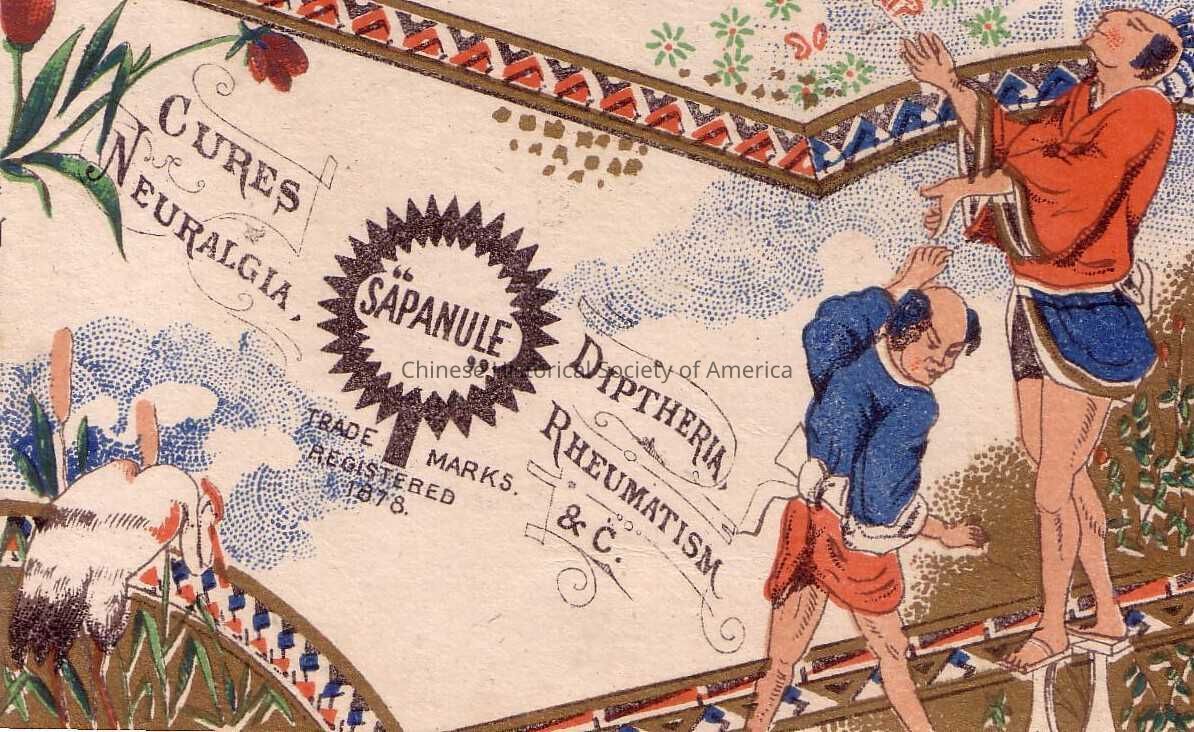 CURES
NEURALGIA,
"SAPANULE"
TRADE MARKS.
REGISTERED
1878.
DIPTHERIA,
RHEUMATISM
& C.
Chinese Historical Society of America